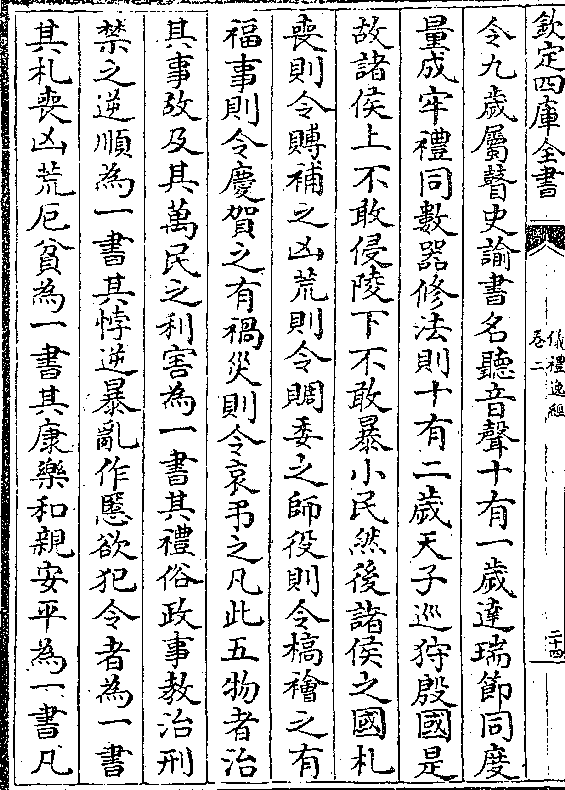 欽定四庫全書
儀禮逸經
卷二
二十四
令九歲屬瞽史諭書名聽音聲十有一歲達瑞節同度
量成牢禮同數器修法則十有二歲天子巡狩殷國是
故諸侯上不敢侵陵下不敢暴小民然後諸侯之國札
喪則令賻補之凶荒則令賙委之師役則令槁禬之有
福事則令慶賀之有禍災則令哀弔之凡此五物者治
其事故及其萬民之利害為一書其禮俗政事教治刑
禁之逆順為一書其悖逆暴亂作慝欲犯令者為一書
其札喪凶荒厄貧為一書其康樂和親安平為一書凡